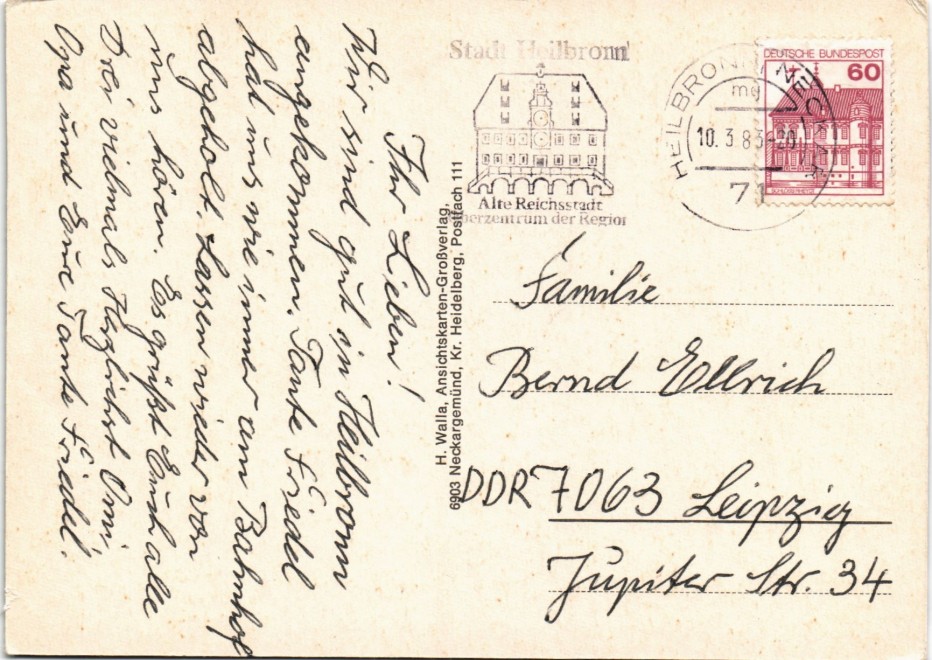 Ihr Lieben!
Wir sind gut in Heilbronn
angekommen. Tante Friedel
hat uns wie immer am Bahnhof
abgeholt. Lassen wieder von
uns hören. Es grüßt Euch alle
Drei vielmals Herzlichst Omi,
Opa und Eure Tante Friedel.
H. Walla, Ansichtskarten-Großverlag,
6903 Neckargemünd, Kr. Heidelberg, Postfach 111
Stadt Heilbronn
Alte Reichsstadt
Oberzentrum der Region
HEILBRONN
10. 3. 83-20
71
DEUTSCHE BUNDESPOST
60
Familie
Bernd Ellrich
DDR 7063 Leipzig
Jupiter Str. 34